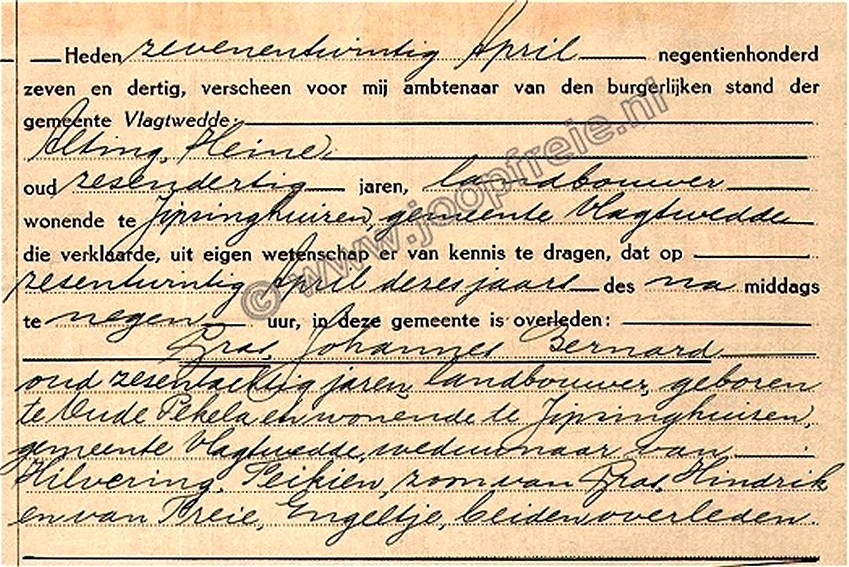 Heden zevenentwintig April negentienhonderd
zeven en dertig, verscheen voor mij ambtenaar van den burgerlijken stand der
gemeente Vlagtwedde:
Alting, Heine,
oud zesendertig jaren, landbouwer
wonende te Jipsinghuizen, gemeente Vlagtwedde
die verklaarde, uit eigen wetenschap er van kennis te dragen, dat op
zesentwintig April dezes jaars des na middags
te negen uur, in deze gemeente is overleden:
Gras, Johannes Bernard
oud zesentachtig jaren, landbouwer, geboren
te Oude Pekela en wonende te Jipsinghuizen,
gemeente Vlagtwedde, weduwnaar van
Hilvering, Feikien, zoon van Gras, Hindrik
en van Freie, Engeltje, beiden overleden.
© www.joopfreie.nl